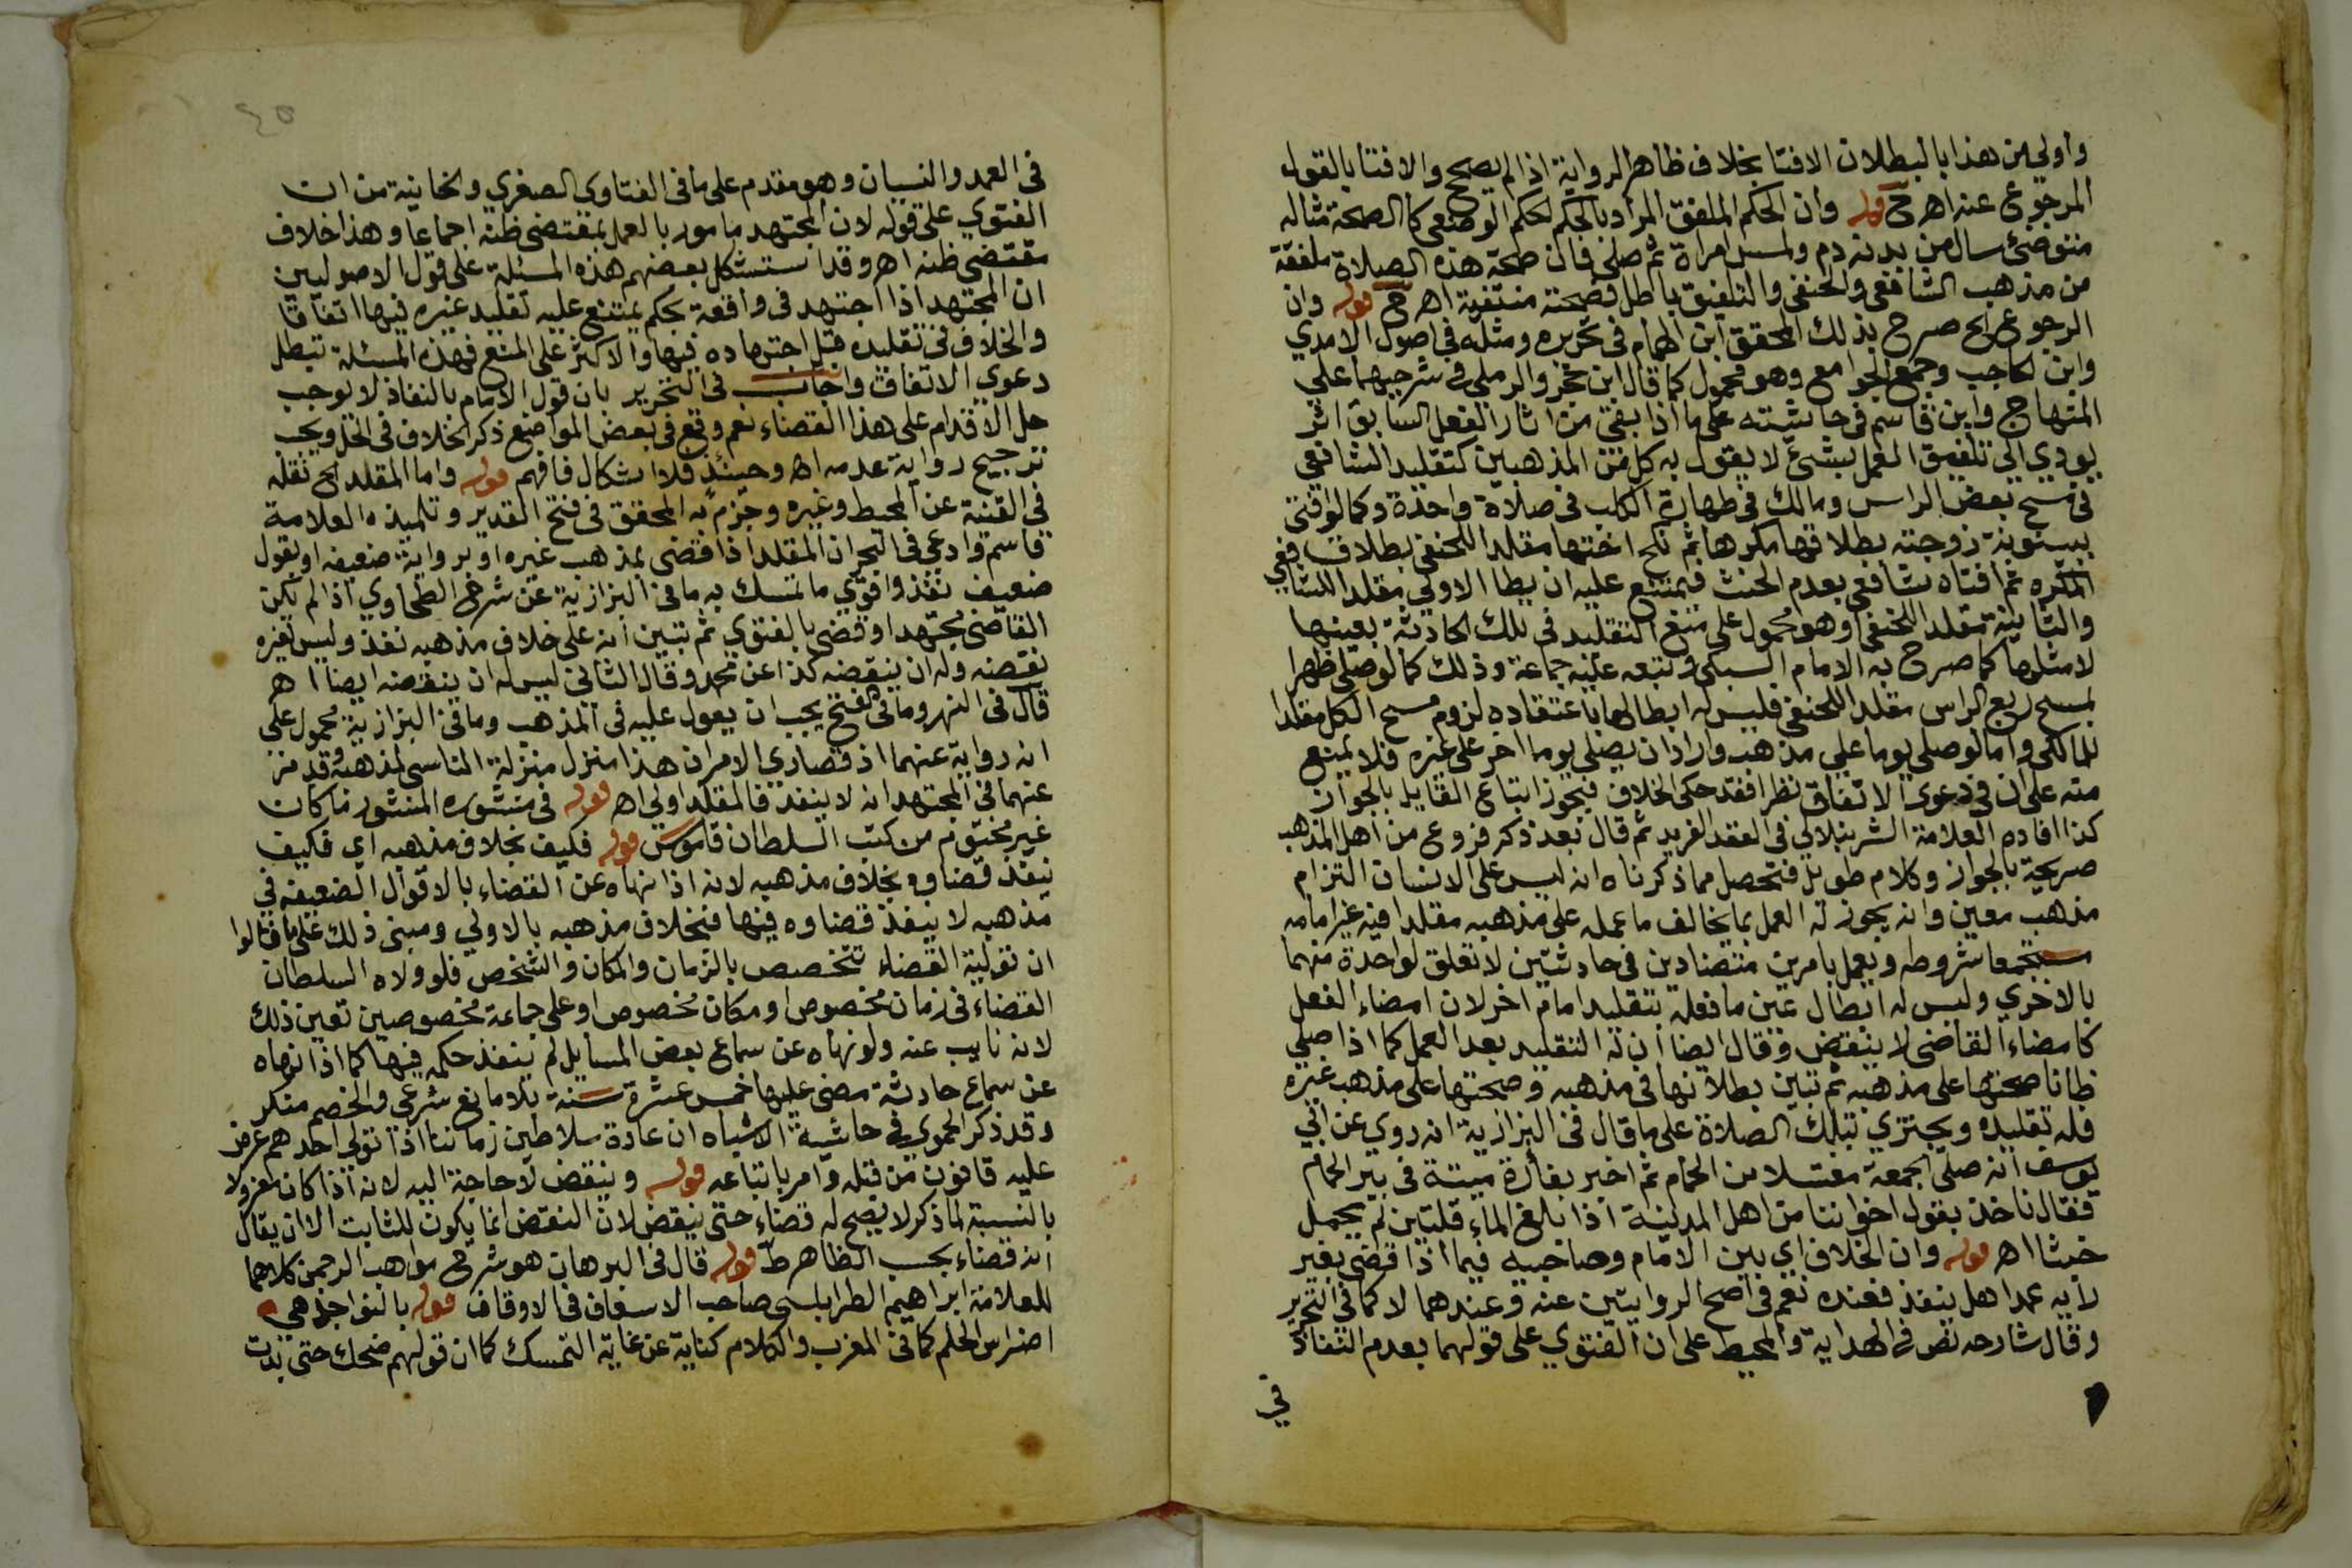 واولي من هذا بالبطلان الافتا بخلاف ظاهر الرواية اذا لم يصحح والافتا بالقول
المرجوع عنه اهـ ح قوله وان الحكم الملفق المراد بالحكم الحكم الوضعي كالصحة مثاله
متوضئ سال من بدنه دم ولمس امراة ثم صلى فان صحة هذه الصلاة ملفقة
من مذهب الشافعي والحنفي والتلفيق باطل فصحته منتفية اهـ ح قوله وان
الرجوع الخ صرح بذلك المحقق ابن الهمام في تحريره ومثله في اصول الامدي
وابن الحاجب وجمع الجوامع وهو محمول كما قال ابن حجر والرملي في شرحيهما علي
المنهاج وابن قاسم في حاشيته على ما اذا بقي من اثار الفعل السابق اثر
يودي الي تلفيق العمل بشئ لا يقول به كل من المذهبين كتقليد الشافعي
في مسح بعض الراس ومالك في طهارة الكلب في صلاة واحدة وكما لو افتى
ببينونة زوجته بطلاقها مكرها ثم نكح اختها مقلدا للحنفي بطلاق
المكره ثم افتاه شافعي بعدم الحنث فيمتنع عليه ان يطا الاولي مقلدا للشافعي
والثانية مقلدا للحنفي وهو محمول على منع التقليد في تلك الحادثة بعينها
لا مثلها كما صرح به الامام السبكي وتبعه عليه جماعة وذلك كما لو صلى ظهرا
بمسح ربع الراس مقلدا للحنفي فليس له ابطالها باعتقاده لزوم مسح الكل مقلدا
للمالكي واما لو صلى يوما علي مذهب واراد ان يصلي يوما اخر على غيره فلا يمنع
منه على ان في دعوى الاتفاق نظرا فقد حكي الخلاف فيجوز اتباع القايل بالجواز
كذا افاده العلامة الشرنبلالي في العقد الفريد ثم قال بعد ذكر فروع من اهل المذهب
صريحة بالجواز وكلام طويل فتحصل مما ذكرناه انه ليس على الانسان التزام
مذهب معين وانه يجوز له العمل بما يخالف ما عمله على مذهبه مقلدا فيه غير امامه
مستجمعا شروطه ويعمل بامرين متضادين في حادثتين لا تعلق لواحدة منهما
بالاخري وليس له ابطال عين ما فعله بتقليد امام اخر لان امضاء الفعل
كامضاء القاضي لا ينقض وقال ايضا ان له التقليد بعد العمل كما اذا صلى
ظانا صحتها على مذهبه ثم تبين بطلانها في مذهبه وصحتها على مذهب غيره
فله تقليده ويجتزي بتلك الصلاة على ما قال في البزازية انه روي عن ابي
يوسف انه صلى الجمعة مغتسلا من الحمام ثم اخبر بفارة ميتة في بير الحمام
فقال ناخذ بقول اخواننا من اهل المدينة اذا بلغ الماء قلتين لم يحمل
خبثا اهـ قوله وان الخلاف اي بين الامام وصاحبيه فيما اذا قضى بغير
رايه عمدا هل ينفذ فعنده نعم في اصح الروايتين عنه وعندهما لا كما في التحرير
وقال شارحه نص في الهداية والمحيط على ان الفتوي على قولهما بعدم النفاذ
في
في العمد والنسيان وهو مقدم على ما في الفتاوى الصغري والخانية من ان
الفتوي على قوله لان المجتهد مامور بالعمل بمقتضى ظنه اجماعا وهذا خلاف
مقتضي ظنه اهـ وقد استشكل بعضهم هذه المسئلة على قول الاصوليين
ان المجتهد اذا اجتهد في واقعة بحكم يمتنع عليه تقليد غيره فيها اتفاقا
والخلاف في تقليده قبل اجتهاده فيها والاكثر على المنع فهذه المسئلة تبطل
دعوي الاتفاق واجاب في التحرير بان قول الامام بالنفاذ لا يوجب
حل الاقدام على هذا القضاء نعم وقع في بعض المواضع ذكر الخلاف في الحل ويجب
ترجيح رواية عدمه اهـ وحينئذ فلا اشكال فافهم قوله واما المقلد الخ نقله
في القنية عن المحيط وغيره وجزم به المحقق في فتح القدير وتلميذه العلامة
قاسم وادعي في البحر ان المقلد اذا قضى بمذهب غيره او برواية ضعيفه او بقول
ضعيف نفذ واقوي ما تمسك به ما في البزازية عن شرح الطحاوي اذا لم يكن
القاضي مجتهدا وقضى بالفتوي ثم تبين انه على خلاف مذهبه نفذ وليس لغيره
نقضه وله ان ينقضه كذا عن محمد وقال الثاني ليس له ان ينقضه ايضا اهـ
قال في النهر وما في الفتح يجب ان يعول عليه في المذهب وما في البزازية محمول على
انه رواية عنهما اذ قصاري الامر ان هذا منزل منزلة الناسي لمذهبه وقد مر
عنهما في المجتهد انه لا ينفذ فالمقلد اولي اهـ قوله في منشوره المنشور ما كان
غير مختوم من كتب السلطان قاموس قوله فكيف بخلاف مذهبه اي فكيف
ينفذ قضاوه بخلاف مذهبه لانه اذا نهاه عن القضاء بالاقوال الضعيفة في
مذهبه لا ينفذ قضاوه فيها فبخلاف مذهبه بالاولي ومبنى ذلك على ما قالوا
ان تولية القضاء تتخصص بالزمان والمكان والشخص فلو ولاه السلطان
القضاء في زمان مخصوص او مكان مخصوص او على جماعة مخصوصين تعين ذلك
لانه نايب عنه ولو نهاه عن سماع بعض المسايل لم ينفذ حكمه فيها كما اذا نهاه
عن سماع حادثة مضى عليها خمس عشرة سنة بلا مانع شرعي والخصم منكر
وقد ذكر الحموي في حاشية الاشباه ان عادة سلاطين زماننا اذا تولى احدهم عرض
عليه قانون من قبله وامر باتباعه قوله وينقض لا حاجة اليه لانه اذا كان معزولا
بالنسبة لما ذكر لا يصح له قضاء حتى ينقض لان النقض انما يكون للثابت الا ان يقال
انه قضاء بحسب الظاهر ط قوله قال في البرهان هو شرح مواهب الرحمن كلاهما
للعلامة ابراهيم الطرابلسي صاحب الاسعاف في الاوقاف قوله بالنواجذ هي
اضراس الحلم كما في المغرب والكلام كناية عن غاية التمسك كما ان قولهم ضحك حتى بدت